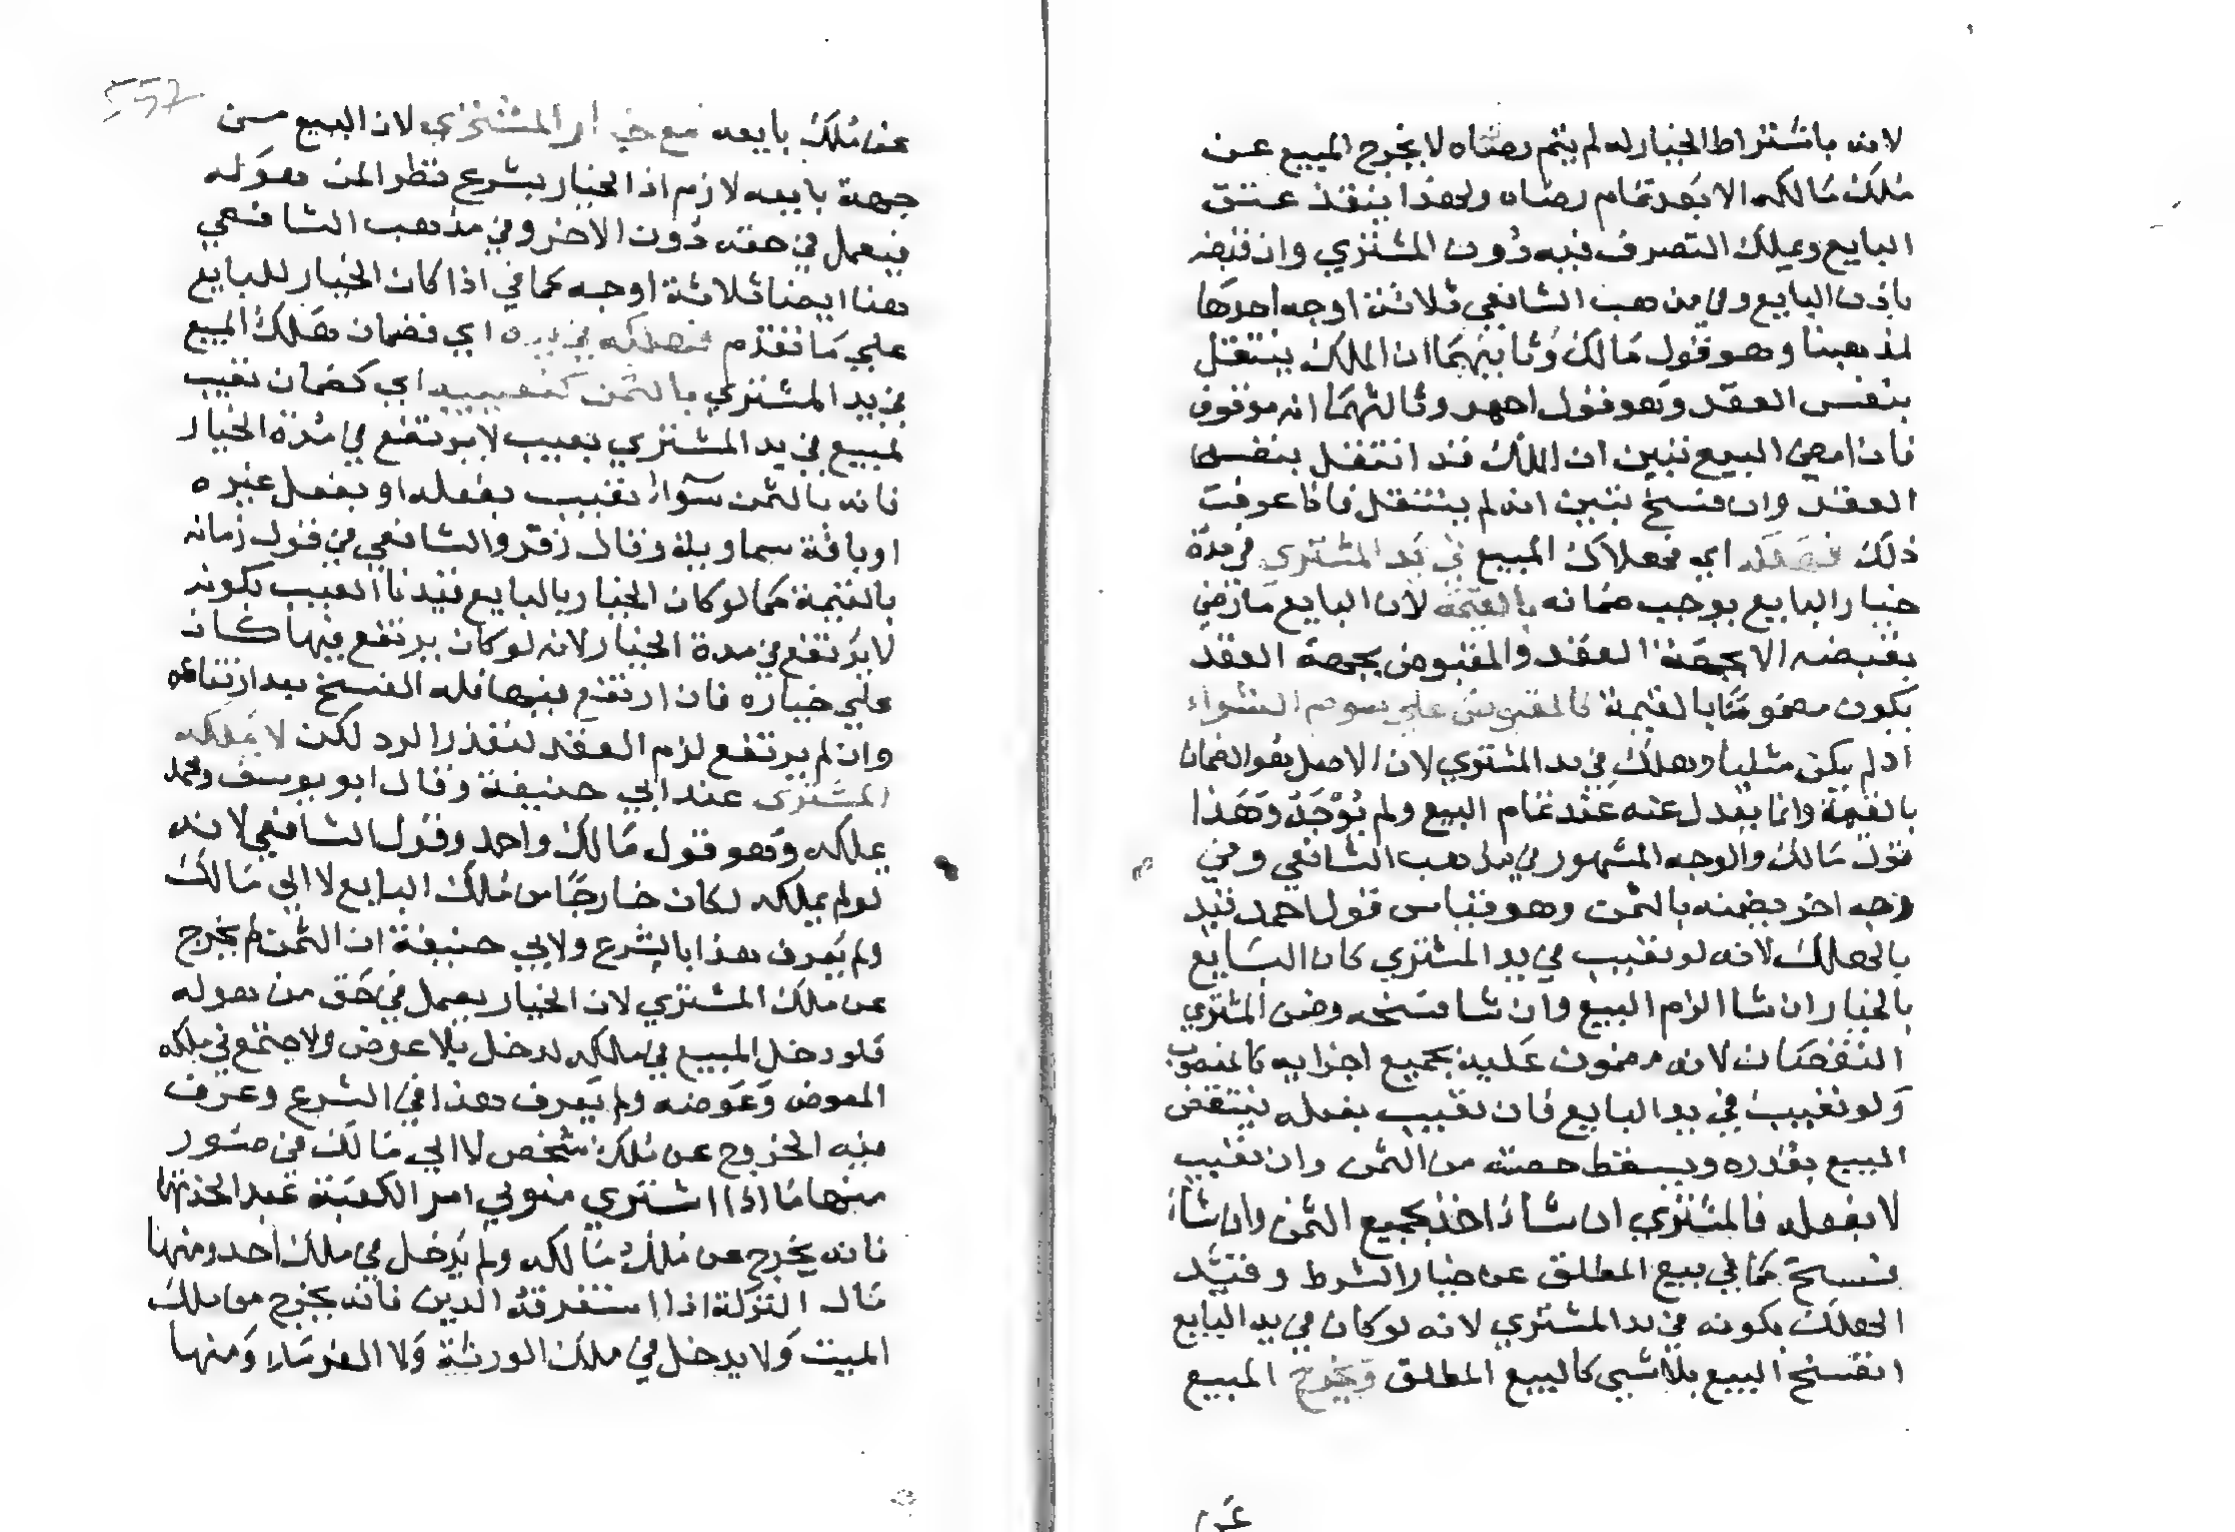 لانه باشتراط الخيار له لم يتم رضاه لا يخرج المبيع عن
ملك مالكه الا بعد تمام رضاه ولهذا ينفذ عتق
البايع ويملك التصرف فيه دون المشتري وان قبضه
باذن البايع وفي مذهب الشافعي ثلاثة اوجه احدها
لمذهبنا وهو قول مالك وثانيهما ان الملك ينتقل
بنفس العقد وهو قول احمد وثالثهما انه موقوف
فان امضى البيع تبين ان الملك قد انتقل بنفس
العقد وان فسخ تبين انه لم ينتقل فاذا عرفت
ذلك فهلكه اي فهلاك المبيع في يد المشتري في مدة
خيار البايع يوجب ضمانه بالقيمة لان البايع ما رضي
بقبضه الا بجهة العقد والمقبوض بجهة العقد
يكون مضمونا بالقيمة كالمقبوض علي سوم الشراء
اذ لم يكن مثليا وهلك في يد المشتري لان الاصل هو الضمان
بالقيمة وانما يعدل عنه عند تمام البيع ولم يوجد وهذا
قول مالك والوجه المشهور في مذهب الشافعي وفي
وجه اخر يضمنه بالثمن وهو قياس قول احمد قيد
بالهلك لانه لو تعيب في يد المشتري كان البايع
بالخيار ان شا الزم البيع وان شا فسخه وضمن المشتري
النقصان لانه مضمون عليه بجميع اجزايه كالمغصوب
ولو تعيب في يد البايع فان تعيب بفعله ينتقض
البيع بقدره ويسقط حصته من الثمن وان تعيب
لا بفعله فالمشتري ان شاء اخذ بجميع الثمن وان شاء
فسخ كما في بيع المطلق عن خيار الشرط وقيد
الهلك بكونه في يد المشتري لانه لو كان في يد البايع
انفسخ البيع بلا شي كالبيع المطلق ويخرج المبيع
عن
557
عن ملك بايعه مع خيار المشتري لان البيع من
جهة بايعه لازم اذ الخيار يشرع نظرا لمن هو له
فيعمل في حقه دون الاخر وفي مذهب الشافعي
هنا ايضا ثلاثة اوجه كما في اذا كان الخيار للبايع
علي ما تقدم فهلكه في يده اي فضمان هلك المبيع
في يد المشتري بالثمن كتعييبه اي كضمان تعيب
لمبيع في يد المشتري بعيب لا يرتفع في مدة الخيار
فانه بالثمن سواء تعيب بفعله او بفعل غيره
او بافة سماوية وقال زفر والشافعي في قول ضمانه
بالقيمة كما لو كان الخيار بالبايع قيدنا العيب بكونه
لا يرتفع في مدة الخيار لانه لو كان يرتفع فيها كان
علي خياره فان ارتفع فيها فله الفسخ بعد ارتفاعه
وان لم يرتفع لزم العقد لتعذر الرد لكن لا يملكه
المشتري عند ابي حنيفة وقال ابو يوسف ومحمد
يملكه وهو قول مالك واحمد وقول الشافعي لانه
لو لم يملكه لكان خارجا من ملك البايع لا الي مالك
ولم يعرف هذا بالشرع ولابي حنيفة ان الثمن لم يخرج
عن ملك المشتري لان الخيار يعمل في حق من هو له
فلو دخل المبيع في ملكه لدخل بلا عوض ولاجتمع في ملكه
المعوض وعوضه ولم يعرف هذا في الشرع وعرف
فيه الخروج عن ملك شخص لا الي مالك في صور
منها ما اذا اشتري متولي امر الكعبة عبدا لخدمتها
فانه يخرج عن ملك مالكه ولم يدخل في ملك احد ومنها
مال التركة اذا استغرقته الدين فانه يخرج من ملك
الميت ولا يدخل في ملك الورثة ولا الغرماء ومنها